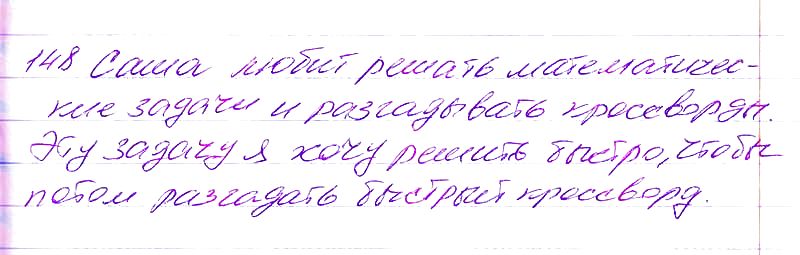 148 Саша любит решать математичес-
кие задачи и разгадывать кроссворды.
Эту задачу я хочу решить быстро, чтобы
потом разгадать быстрый кроссворд.